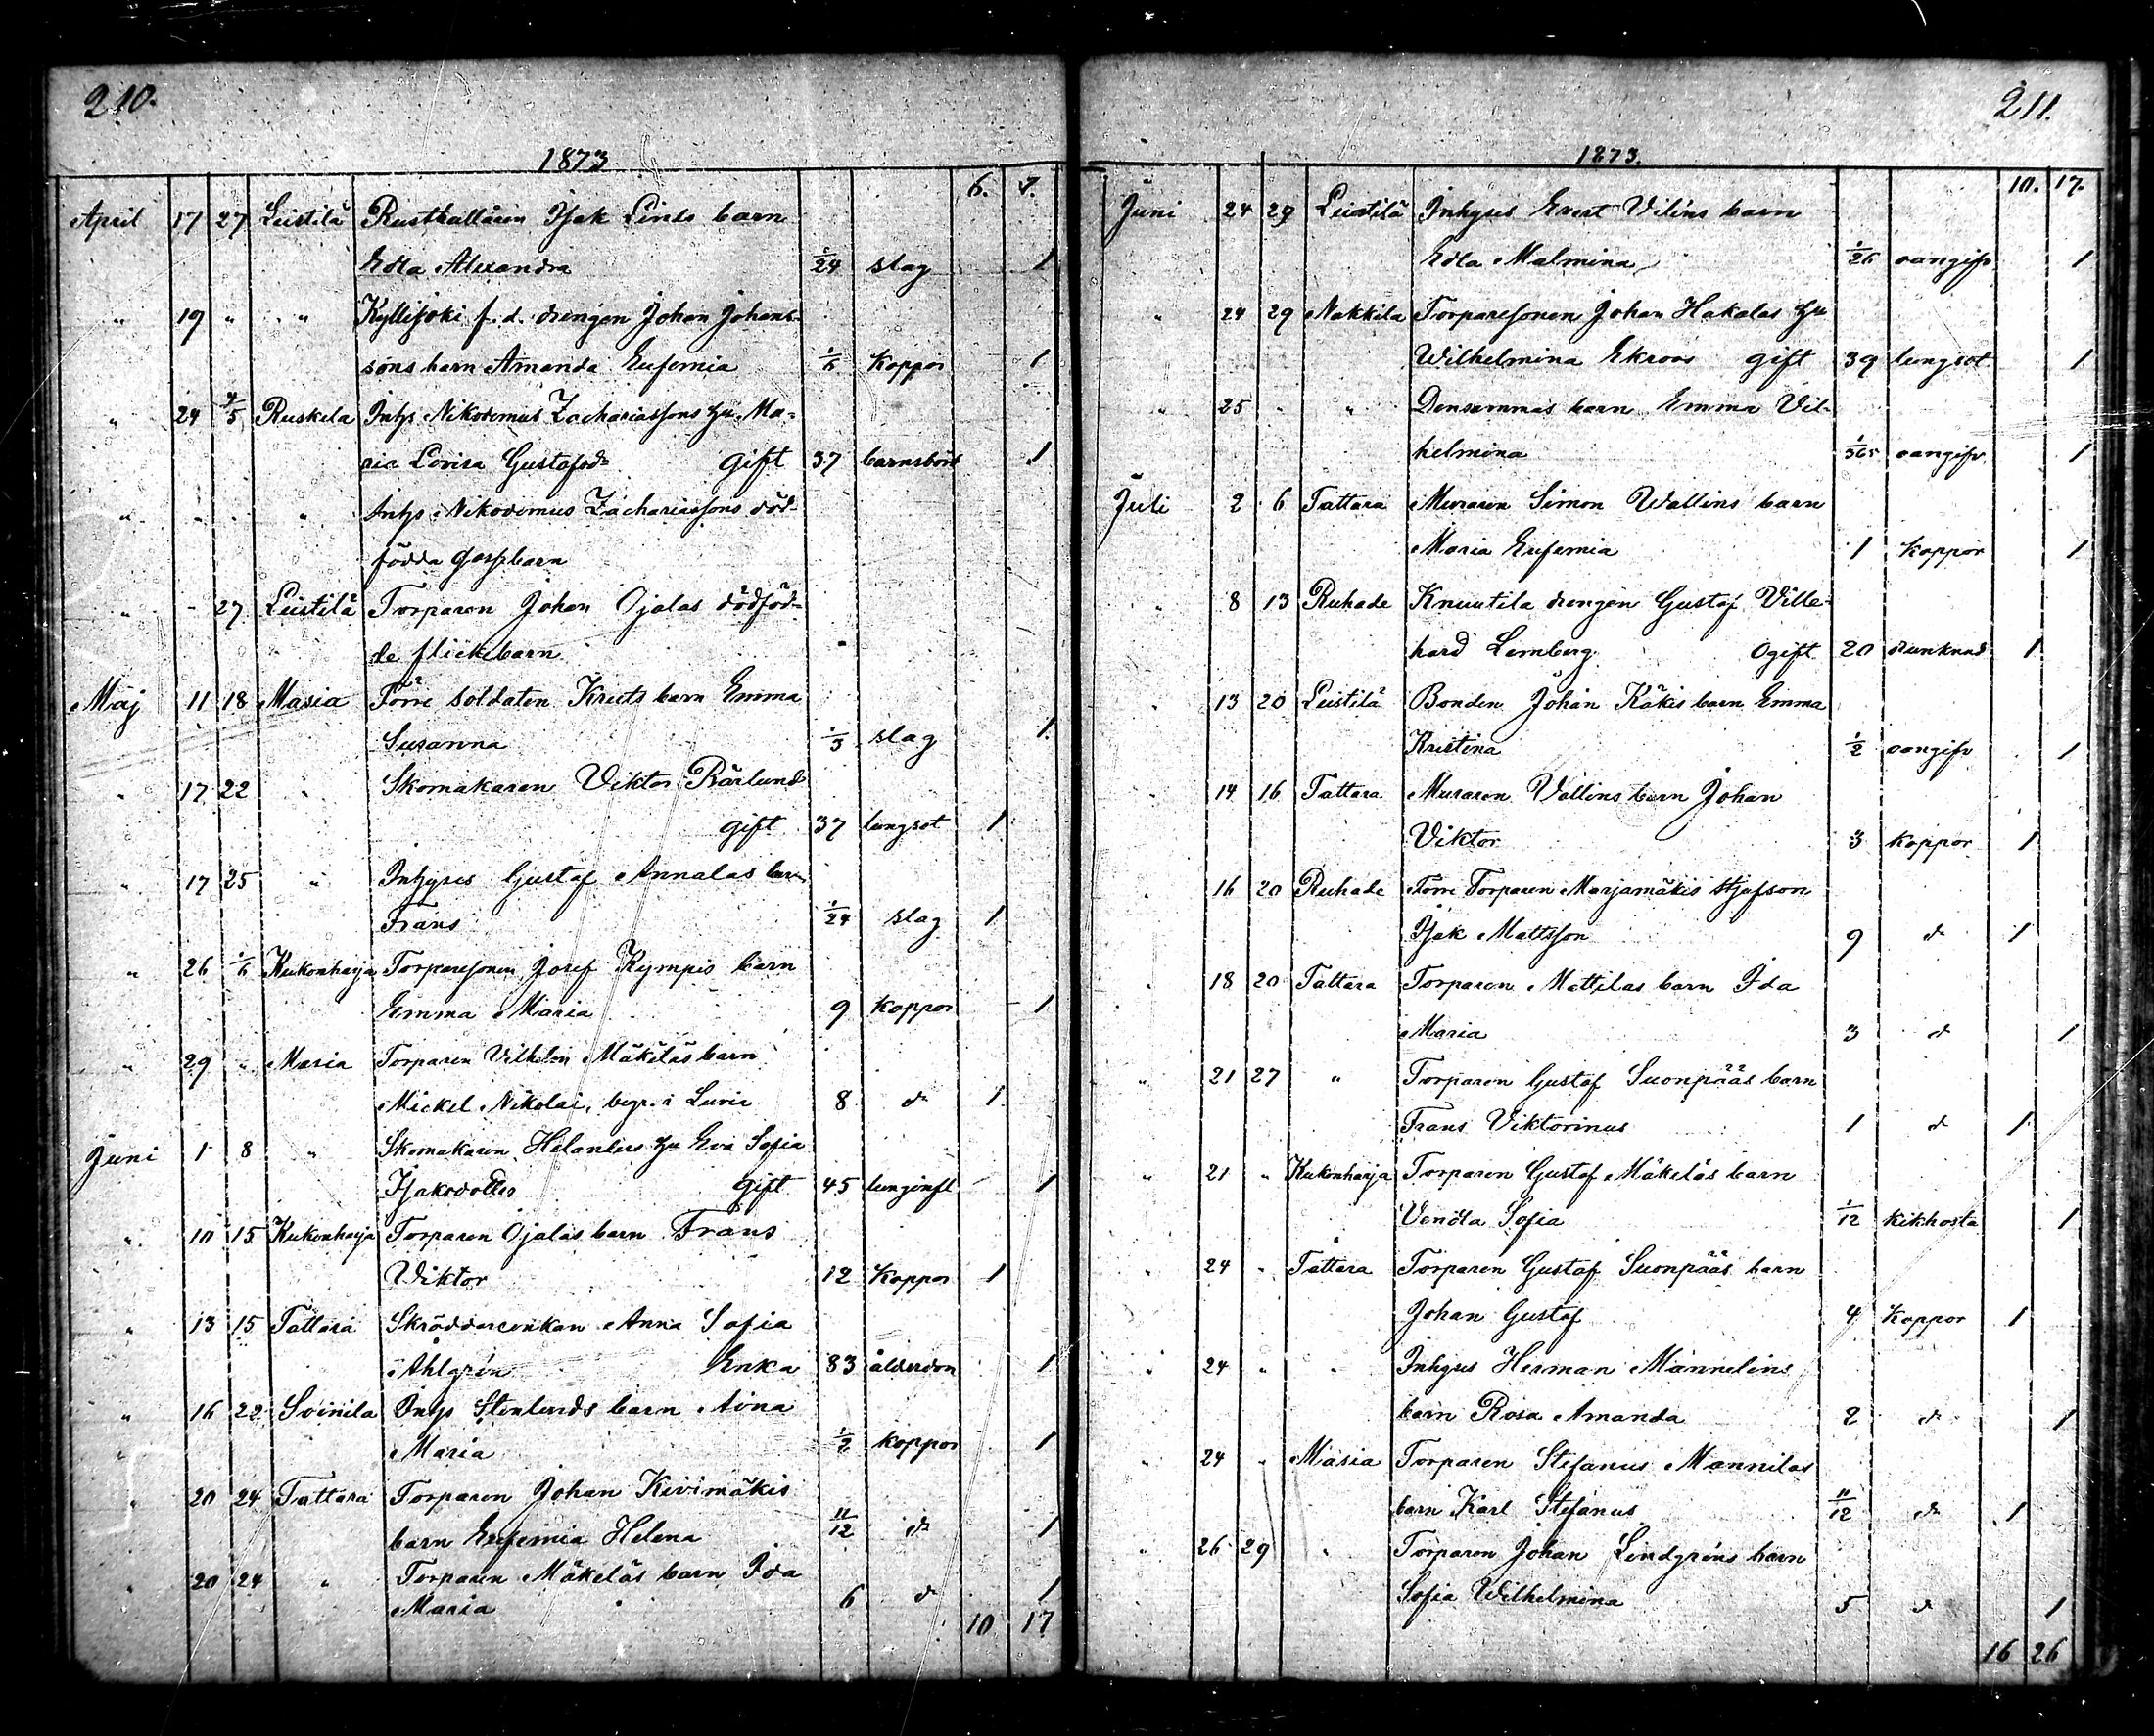 210.
1873
6. 7.
April 17 27 Leistilä Rusthållaren Isak Linds barn
Edla Alexandra 1/24 slag 1
" 19 " " Kyllijoki f. d. drengen Johan Johans-
sons barn Amanda Eufemia 1/6 Koppor 1
" 24 4/5 Ruskela Inhys Nikodemus Zachariassons hu Ma-
ria Lovisa Gustafsdr gift 37 barnsbörd 1
" " " " Inhys Nikodemus Zachariassons död-
födda gossebarn
" - 27 Leistilä Torparen Johan Ojalas dödföd-
de flickebarn
Maj 11 18 Masia Förre soldaten Kruts barn Emma
Susanna 1/3 slag 1
" 17 22 " Skomakaren Viktor Bärlund
gift 37 lungsot 1
" 17 25 " Inhyses Gustaf Annalas barn
Frans 1/24 slag 1
" 26 1/6 Kukonharja Torparesonen Josef Kympis barn
Emma Maria 9 Koppor 1
" 29 " Masia Torparen Vilhelm Mäkeläs barn
Mickel Nikolai, begr. i Luvia 8 do 1
Juni 1 8 " Skomakaren Helanders hu Eva Sofia
Isaksdotter gift 45 lunginfl 1
" 10 15 Kukonharja Torparen Ojalas barn Frans
Viktor 12 Koppor 1
" 13 15 Tattara Skräddareenkan Anna Sofia
Ahlgrén Enka 83 ålderdom 1
" 16 22 Soinila Inhys Stenlunds barn Aina
Maria 1/2 koppor 1
" 20 24 Tattara Torparen Johan Kivimäkis
barn Eufemia Helena 11/12 do 1
" 20 24 " Torparen Mäkeläs barn Ida
Maria 6 do 1
10 17
211.
1873.
10. 17.
Juni 24 29 Leistilä Inhyses Evert Viléns barn
Edla Malmina 1/26 oangifv 1
" 24 29 Nakkila Torparesonen Johan Hakalas hu
Wilhelmina Ekroos gift 39 lungsot 1
" 25 " " Densammas barn Emma Vil-
helmina 1/365 oangifv. 1
Juli 2 6 Tattara Muraren Simon Wallins barn
Maria Eufemia 1 Koppor 1
" 8 13 Ruhade Knuutila drengen Gustaf Ville-
hard Lemberg Ogift 20 drunknad 1
" 13 20 Leistilä Bonden Johan Käkis barn Emma
Kristina 1/2 oangifv 1
" 14 16 Tattara Muraren Vallins barn Johan
Viktor 3 koppor 1
" 16 20 Ruhade Förre Torparen Marjamäkis styfson
Isak Mattsson 9 do 1
" 18 20 Tattara Torparen Mattilas barn Ida
Maria 3 do 1
" 21 27 " Torparen Gustaf Suonpääs barn
Frans Viktorinus 1 do 1
" 21 " Kukonharja Torparen Gustaf Mäkeläs barn
Vendla Sofia 1/12 kikhosta 1
" 24 " Tattara Torparen Gustaf Suonpääs barn
Johan Gustaf 4 Koppor 1
" 24 " " Inhyses Herman Mannelins
barn Rosa Amanda 2 do 1
" 24 " Masia Torparen Stefanus Mannilas
barn Karl Stefanus 11/12 do 1
" 26 29 " Torparen Johan Lindgréns barn
Sofia Wilhelmina 5 do 1
16 26